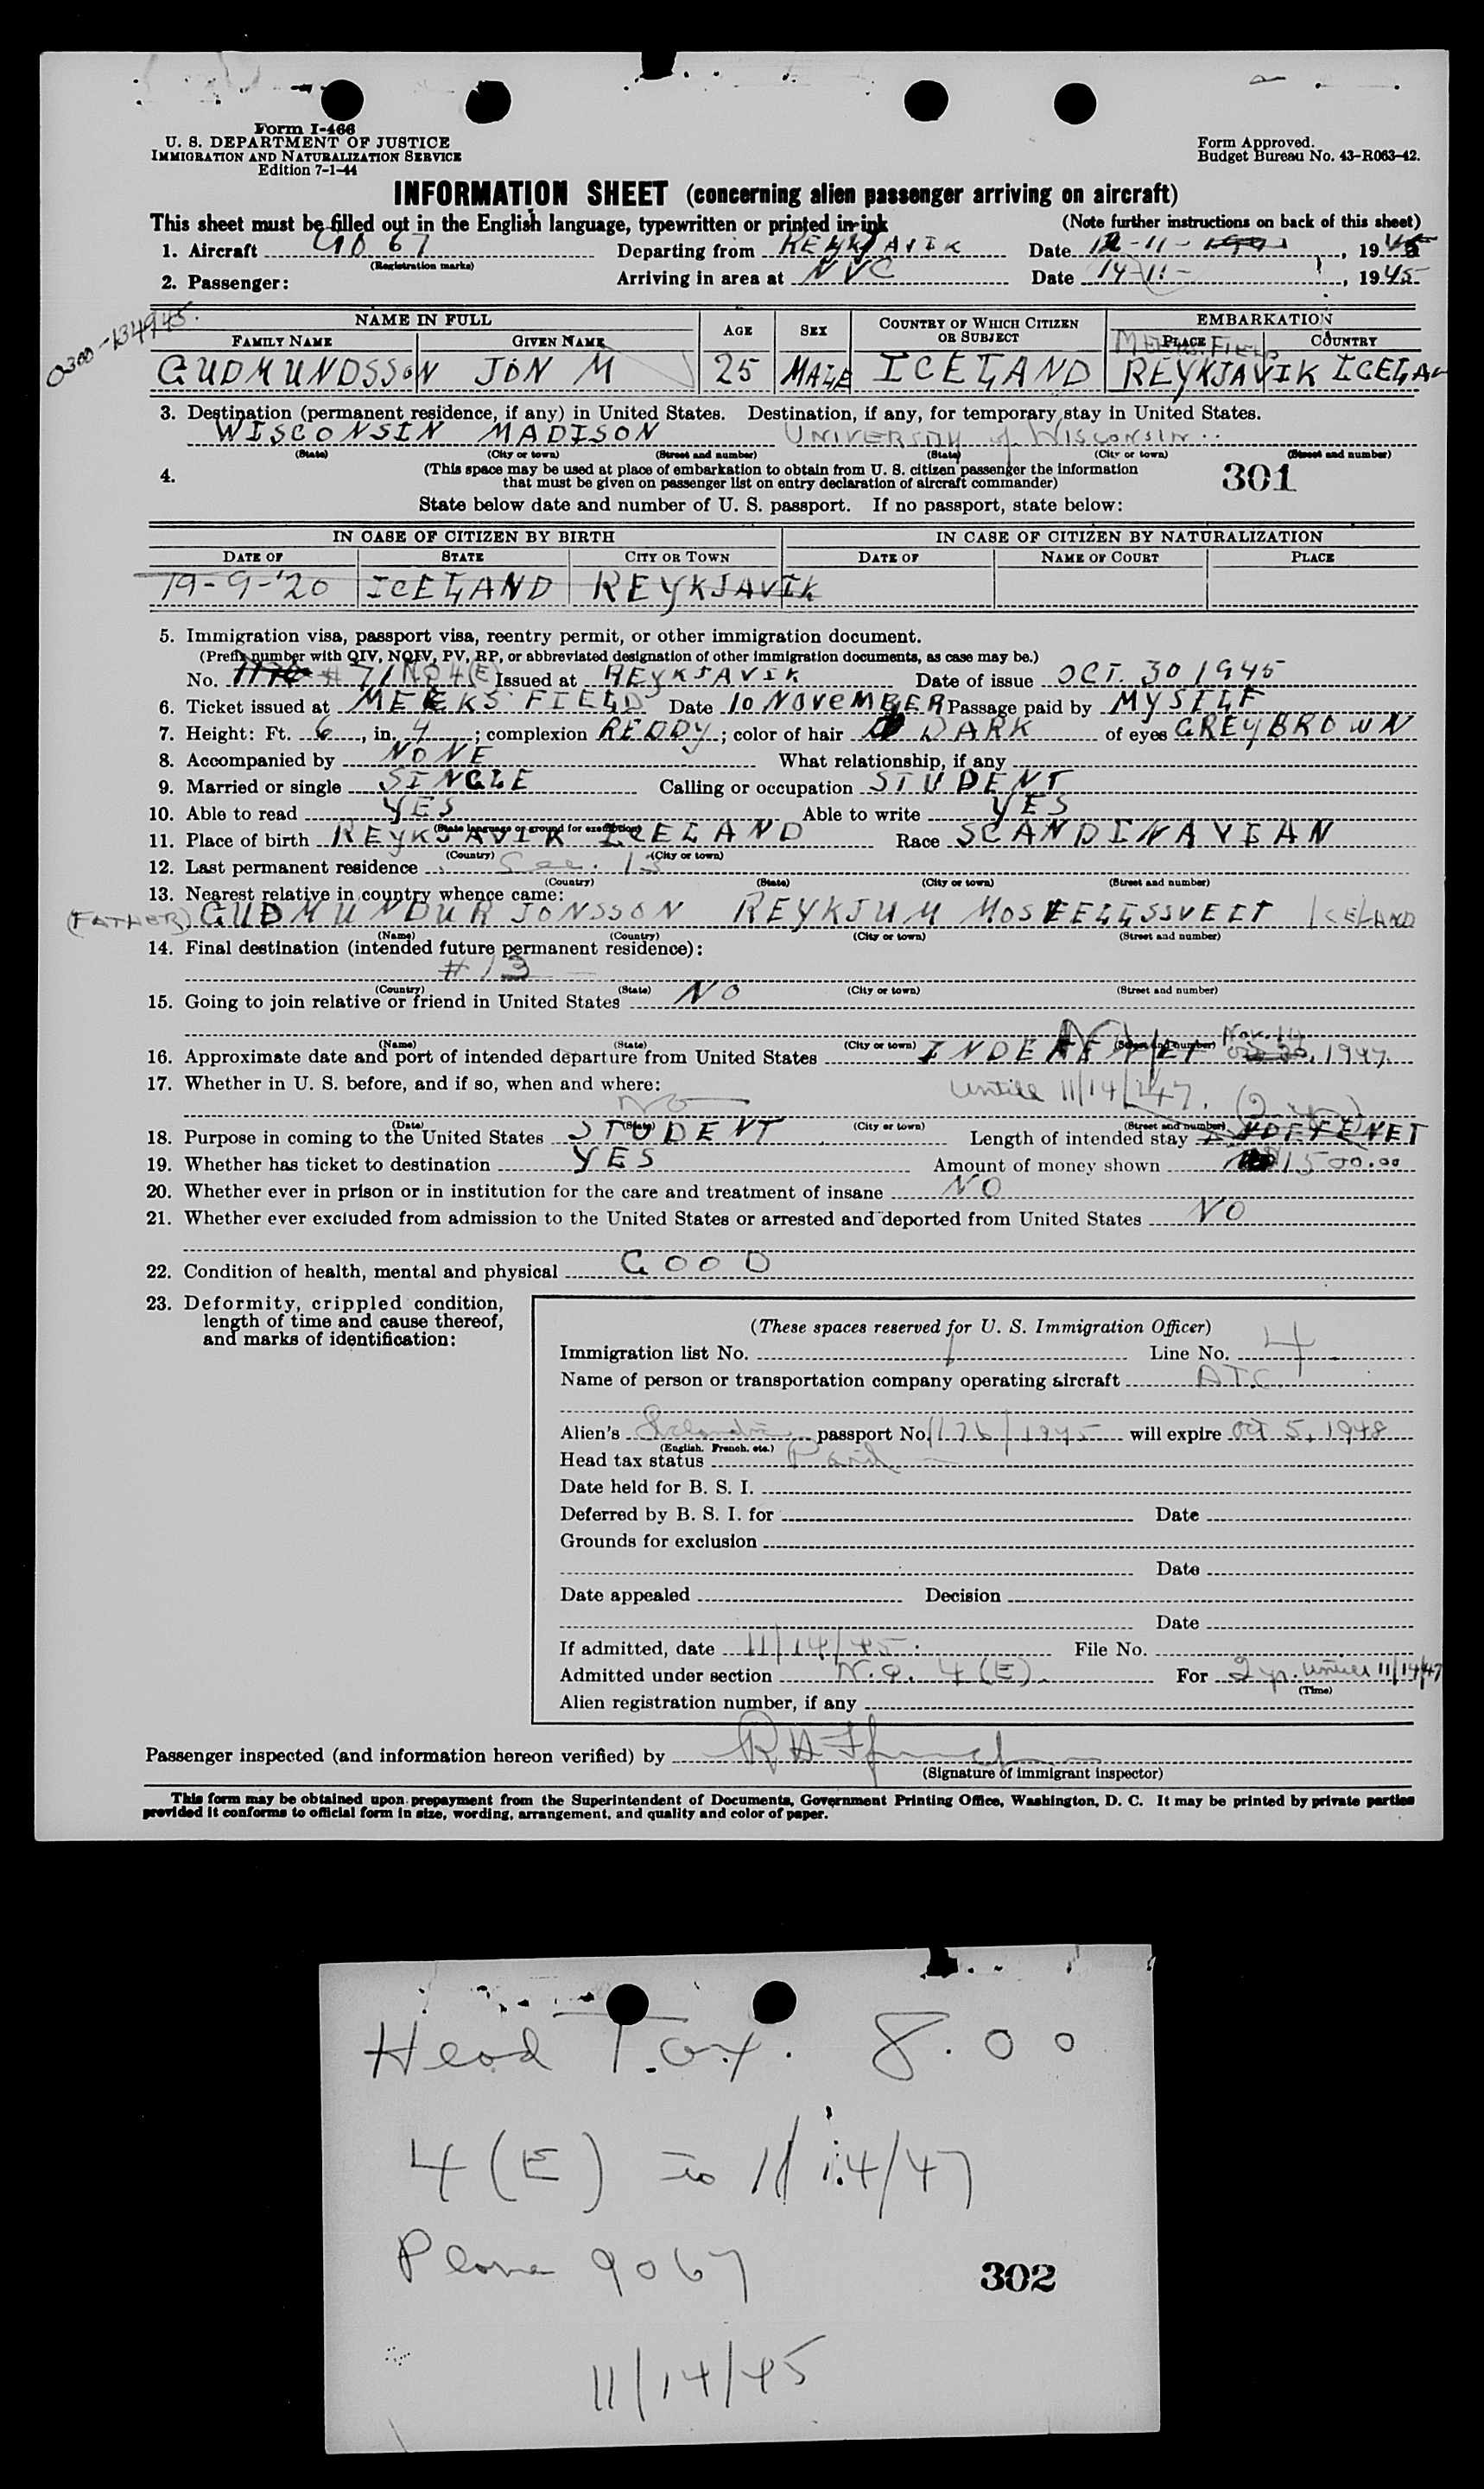 Form I-466
U. S. DEPARTMENT OF JUSTICE
IMMIGRATION AND NATURALIZATION SERVICE
Edition 7-1-44
Form Approved.
Budget Bureau No. 43-R063-42.
INFORMATION SHEET (concerning alien passenger arriving on aircraft)
This sheet must be filled out in the English language, typewritten or printed in ink (Note further instructions on back of this sheet)
1. Aircraft 9067 Departing from REYKJAVIK Date 12-11- , 1945
(Registration marks)
2. Passenger: Arriving in area at NYC Date 14-11- , 1945
0300-134945.
NAME IN FULL AGE SEX COUNTRY OF WHICH CITIZEN OR SUBJECT EMBARKATION
FAMILY NAME GIVEN NAME PLACE COUNTRY
MEEKS FIELD
GUDMUNDSSON JÓN M 25 MALE ICELAND REYKJAVIK ICELAN
3. Destination (permanent residence, if any) in United States. Destination, if any, for temporary stay in United States.
WISCONSIN MADISON UNIVERSITY of WISCONSIN
(State) (City or town) (Street and number) (State) (City or town) (Street and number)
4. (This space may be used at place of embarkation to obtain from U. S. citizen passenger the information
that must be given on passenger list on entry declaration of aircraft commander)
301
State below date and number of U. S. passport. If no passport, state below:
IN CASE OF CITIZEN BY BIRTH IN CASE OF CITIZEN BY NATURALIZATION
DATE OF STATE CITY OR TOWN DATE OF NAME OF COURT PLACE
19-9-'20 ICELAND REYKJAVIK
5. Immigration visa, passport visa, reentry permit, or other immigration document.
(Prefix number with QIV, NQIV, PV, RP, or abbreviated designation of other immigration documents, as case may be.)
No. # 71 NQ 4(E) Issued at REYKJAVIK Date of issue OCT. 30 1945
6. Ticket issued at MEEKS FIELD Date 10 NOVEMBER Passage paid by MYSELF
7. Height: Ft. 6, in. 4; complexion REDDY; color of hair DARK of eyes GREYBROWN
8. Accompanied by NONE What relationship, if any
9. Married or single SINGLE Calling or occupation STUDENT
10. Able to read YES Able to write YES
(State language or ground for exemption)
11. Place of birth REYKJAVIK ICELAND Race SCANDINAVIAN
(Country) (City or town)
12. Last permanent residence See. 13
(Country) (State) (City or town) (Street and number)
13. Nearest relative in country whence came:
(FATHER) GUDMUNDUR JONSSON REYKJUM MOSFELLSSVEIT ICELAND
(Name) (Country) (City or town) (Street and number)
14. Final destination (intended future permanent residence):
# 13
(Country) (State) (City or town) (Street and number)
15. Going to join relative or friend in United States NO
(Name) (State) (City or town) (Street and number)
16. Approximate date and port of intended departure from United States INDEFENET Nov. 14, 1947.
17. Whether in U. S. before, and if so, when and where: until 11/14/47. (2 yr)
No
(Date) (State) (City or town) (Street and number)
18. Purpose in coming to the United States STUDENT Length of intended stay INDEFENET
19. Whether has ticket to destination YES Amount of money shown 1500.00
20. Whether ever in prison or in institution for the care and treatment of insane NO
21. Whether ever excluded from admission to the United States or arrested and deported from United States NO
22. Condition of health, mental and physical GOOD
23. Deformity, crippled condition,
length of time and cause thereof,
and marks of identification:
(These spaces reserved for U. S. Immigration Officer)
Immigration list No. 1 Line No. 4
Name of person or transportation company operating aircraft A.T.C.
Alien's Icelandic passport No. 176/1945 will expire Oct 5, 1948
(English, French, etc.)
Head tax status Paid
Date held for B. S. I.
Deferred by B. S. I. for Date
Grounds for exclusion
Date
Date appealed Decision
Date
If admitted, date 11/14/45. File No.
Admitted under section N.Q. 4(E). For 2 yr. until 11/14/47
(Time)
Alien registration number, if any
Passenger inspected (and information hereon verified) by
(Signature of immigrant inspector)
This form may be obtained upon prepayment from the Superintendent of Documents, Government Printing Office, Washington, D. C. It may be printed by private parties
provided it conforms to official form in size, wording, arrangement, and quality and color of paper.
Head Tax. 8.00
4 (E) to 11/14/47
Plane 9067
302
11/14/45